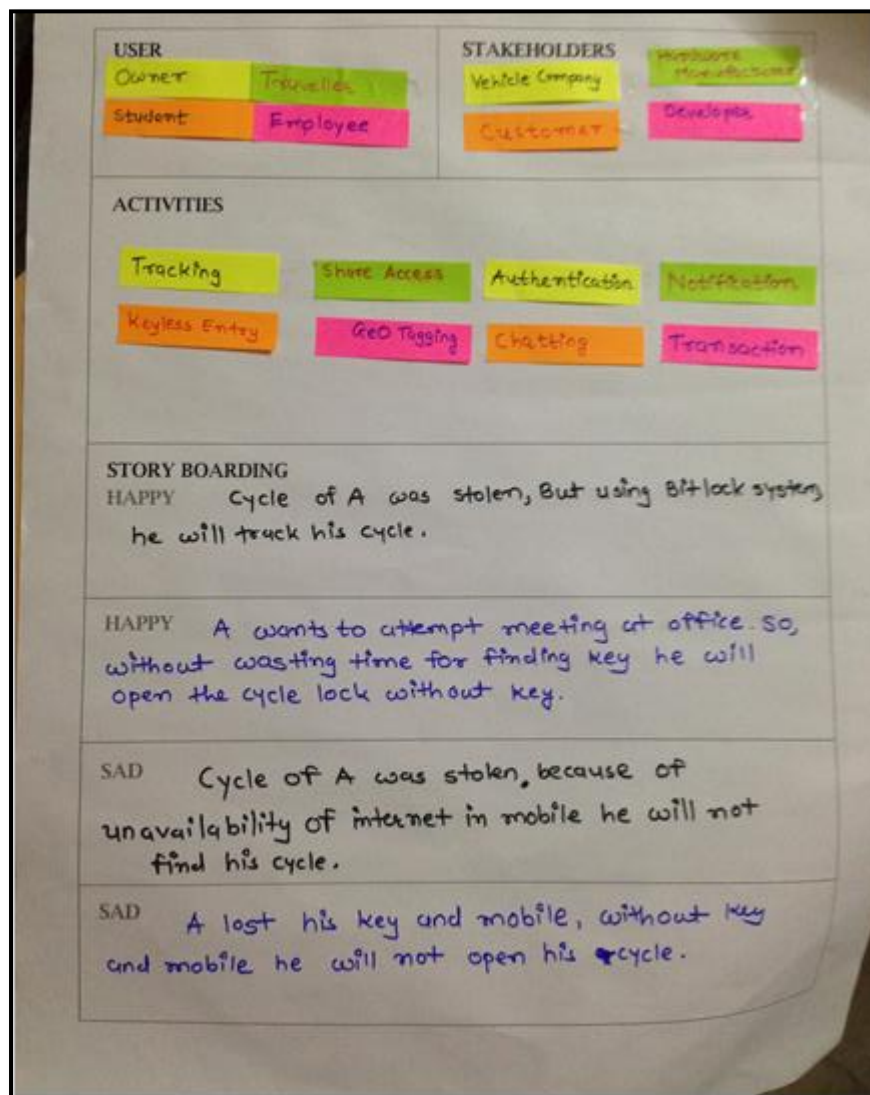 USER
Owner
Traveller
Student
Employee
STAKEHOLDERS
Vehicle Company
Hardware
Manufacturer
Customer
Developer
ACTIVITIES
Tracking
Share Access
Authentication
Notification
Keyless Entry
GeO Tagging
Chatting
Transaction
STORY BOARDING
HAPPY Cycle of A was stolen, But using Bitlock system,
he will track his cycle.
HAPPY A wants to attempt meeting at office. So,
without wasting time for finding key he will
open the cycle lock without key.
SAD Cycle of A was stolen, because of
unavailability of internet in mobile he will not
find his cycle.
SAD A lost his key and mobile, without key
and mobile he will not open his cycle.